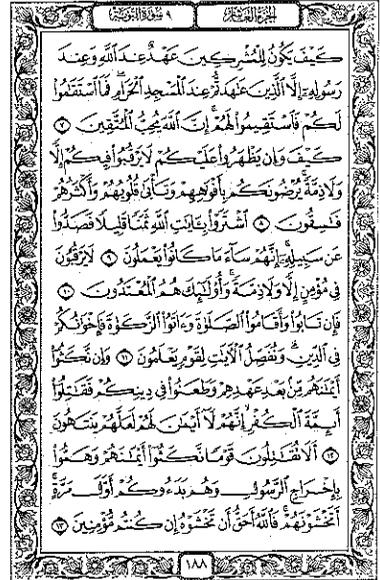 الجزء العاشر ٩ سورة التوبة
كَيْفَ يَكُونُ لِلْمُشْرِكِينَ عَهْدٌ عِندَ اللَّهِ وَعِندَ
رَسُولِهِ إِلَّا الَّذِينَ عَاهَدتُّمْ عِندَ الْمَسْجِدِ الْحَرَامِ فَمَا اسْتَقَامُوا
لَكُمْ فَاسْتَقِيمُوا لَهُمْ إِنَّ اللَّهَ يُحِبُّ الْمُتَّقِينَ ٧
كَيْفَ وَإِن يَظْهَرُوا عَلَيْكُمْ لَا يَرْقُبُوا فِيكُمْ إِلًّا
وَلَا ذِمَّةً يُرْضُونَكُم بِأَفْوَاهِهِمْ وَتَأْبَىٰ قُلُوبُهُمْ وَأَكْثَرُهُمْ
فَاسِقُونَ ٨ اشْتَرَوْا بِآيَاتِ اللَّهِ ثَمَنًا قَلِيلًا فَصَدُّوا
عَن سَبِيلِهِ إِنَّهُمْ سَاءَ مَا كَانُوا يَعْمَلُونَ ٩ لَا يَرْقُبُونَ
فِي مُؤْمِنٍ إِلًّا وَلَا ذِمَّةً وَأُولَٰئِكَ هُمُ الْمُعْتَدُونَ ١٠
فَإِن تَابُوا وَأَقَامُوا الصَّلَاةَ وَآتَوُا الزَّكَاةَ فَإِخْوَانُكُمْ
فِي الدِّينِ وَنُفَصِّلُ الْآيَاتِ لِقَوْمٍ يَعْلَمُونَ ١١ وَإِن نَّكَثُوا
أَيْمَانَهُم مِّن بَعْدِ عَهْدِهِمْ وَطَعَنُوا فِي دِينِكُمْ فَقَاتِلُوا
أَئِمَّةَ الْكُفْرِ إِنَّهُمْ لَا أَيْمَانَ لَهُمْ لَعَلَّهُمْ يَنتَهُونَ
١٢ أَلَا تُقَاتِلُونَ قَوْمًا نَّكَثُوا أَيْمَانَهُمْ وَهَمُّوا
بِإِخْرَاجِ الرَّسُولِ وَهُم بَدَءُوكُمْ أَوَّلَ مَرَّةٍ
أَتَخْشَوْنَهُمْ فَاللَّهُ أَحَقُّ أَن تَخْشَوْهُ إِن كُنتُم مُّؤْمِنِينَ ١٣
١٨٨